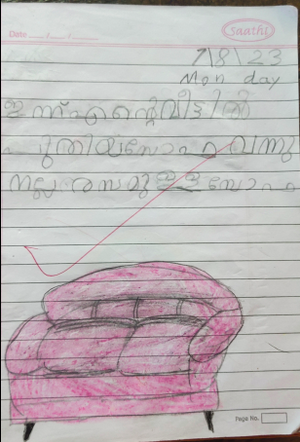 Date ___/___/___
Saathi
7/8/23
Mon day
ഇന്ന് എന്റെ വീട്ടിൽ
പുതിയ സോഫ വന്നു
നല്ല രസമുള്ള സോഫ
Page No.